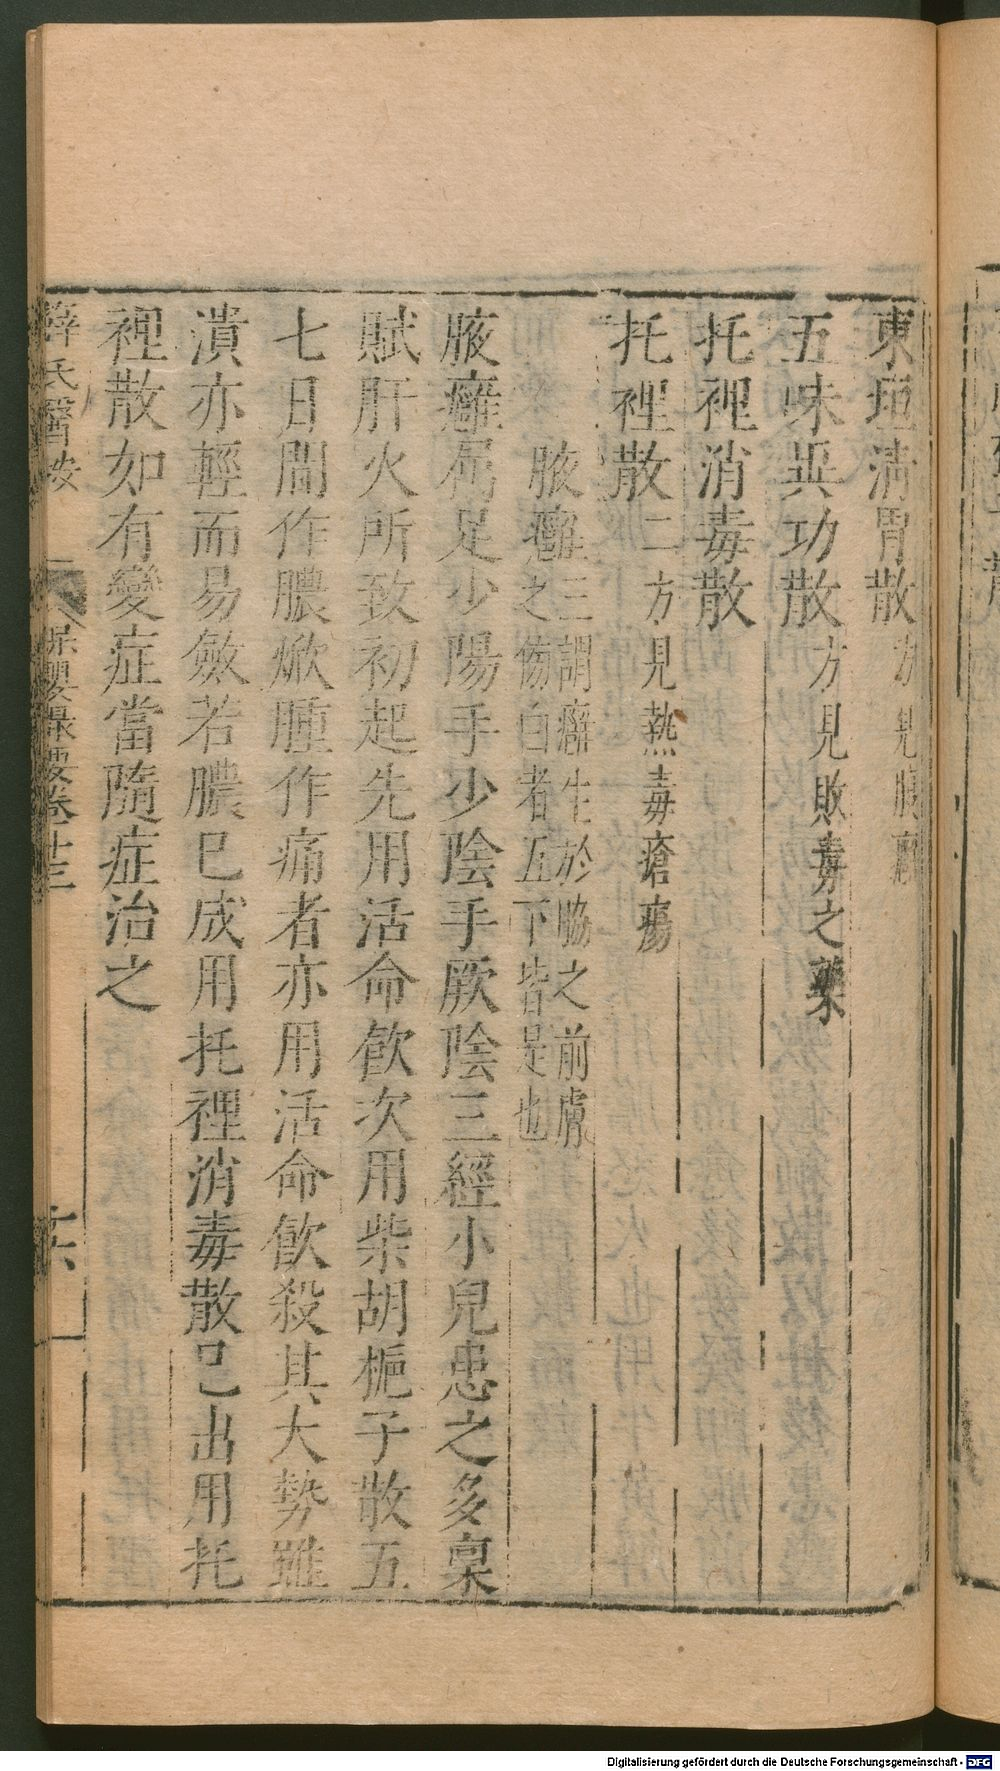 東垣清胃散方見腹癰
五味異功散方見敗毒之藥
托裡消毒散
托裡散二方見熱毒瘡瘍
腋癰三謂癖生於脇之前膚
腋癰之傍白者五下皆是也
腋癰屬足少陽手少陰手厥陰三經小兒患之多稟
賦肝火所致初起先用活命飲次用柴胡梔子散五
七日間作膿焮腫作痛者亦用活命飲殺其大勢雖
潰亦輕而易斂若膿已成用托裡消毒散已出用托
裡散如有變症當隨症治之
薛氏醫按
保嬰撮要卷十三
十六
Digitalisierung gefördert durch die Deutsche Forschungsgemeinschaft - DFG